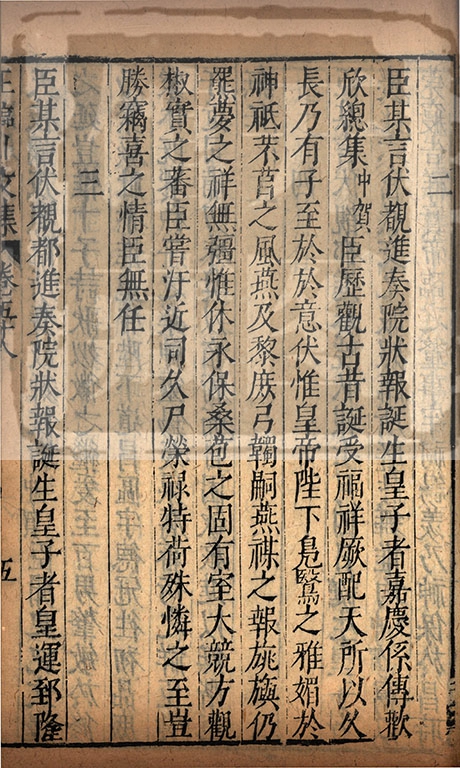 二
臣某言伏覩進奏院狀報誕生皇子者嘉慶係傳歡
欣總集中賀臣歷觀古昔誕受福祥厥配天所以久
長乃有子至於於意伏惟皇帝陛下鳬鷖之雅媚於
神祇芣苢之風燕及黎庶弓韣嗣燕禖之報旐旟仍
羆夢之祥無疆惟休永保桑苞之固有室大競方觀
椒實之蕃臣嘗汙近司久尸榮祿特荷殊憐之至豈
勝竊喜之情臣無任
三
臣某言伏覩都進奏院狀報誕生皇子者皇運郅隆
王臨川文集 卷五十八 五